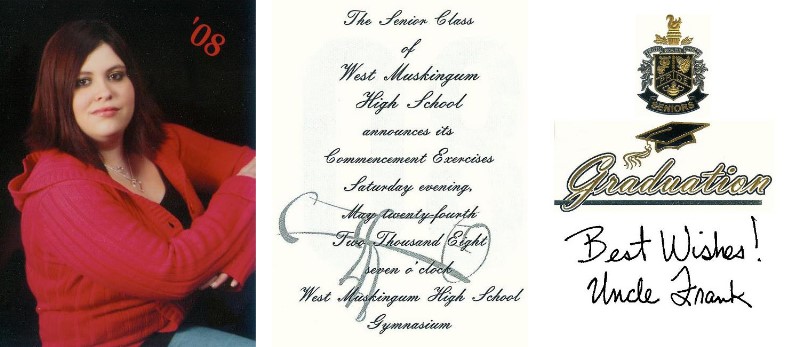 '08
The Senior Class
of
West Muskingum
High School
announces its
Commencement Exercises
Saturday evening,
May twenty-fourth
Two Thousand Eight
seven o'clock
West Muskingum High School
Gymnasium
SENIORS
Graduation
Best Wishes!
Uncle Frank